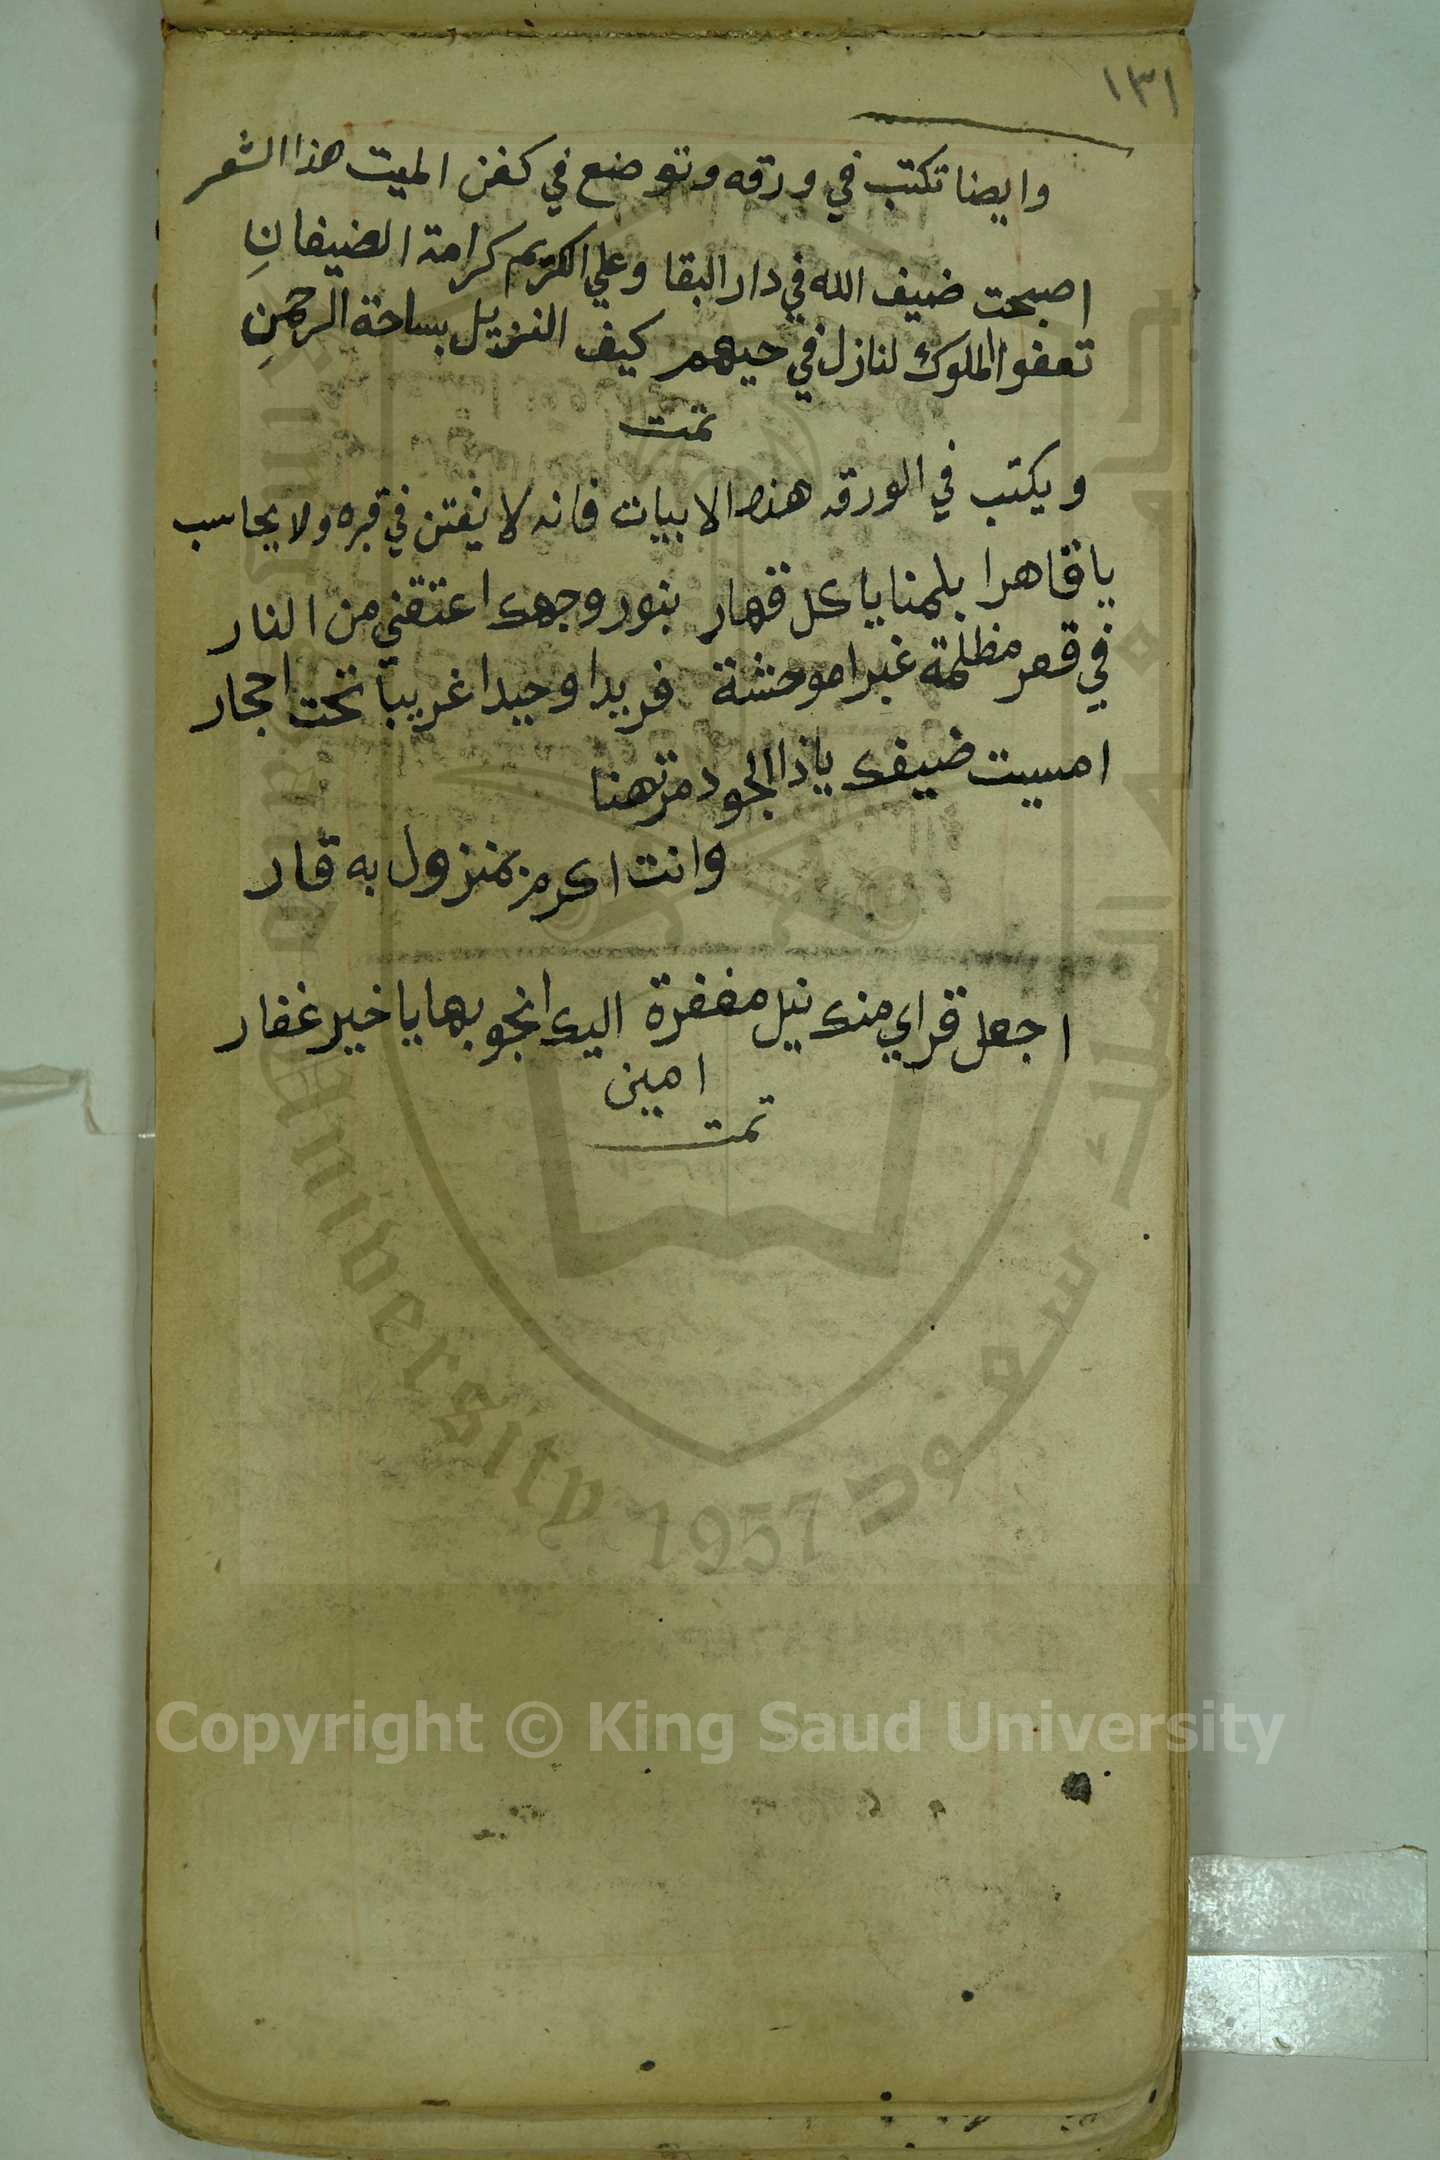 ١٣١
وايضا تكتب في ورقه وتوضع في كفن الميت هذا الشعر
اصبحت ضيف الله في دار البقا وعلي الكريم كرامة الضيفانِ
تعفوا الملوك لنازل في حيهم كيف النزيل بساحة الرحمنِ
تمت
ويكتب في الورقه هذه الابيات فانه لا يفتن في قبره ولا يحاسب
يا قاهرا بالمنايا كل قهار بنور وجهك اعتقني من النار
في قعر مظلمة غبرا موحشة فريدا وحيدا غريبا تحت احجار
امسيت ضيفك ياذا الجود مرتهنا
وانت اكرم منزول به قار
اجعل قراي منك نيل مغفرة اليك انجو بها يا خير غفار
امين
تمت
University 1957
سعود
Copyright © King Saud University